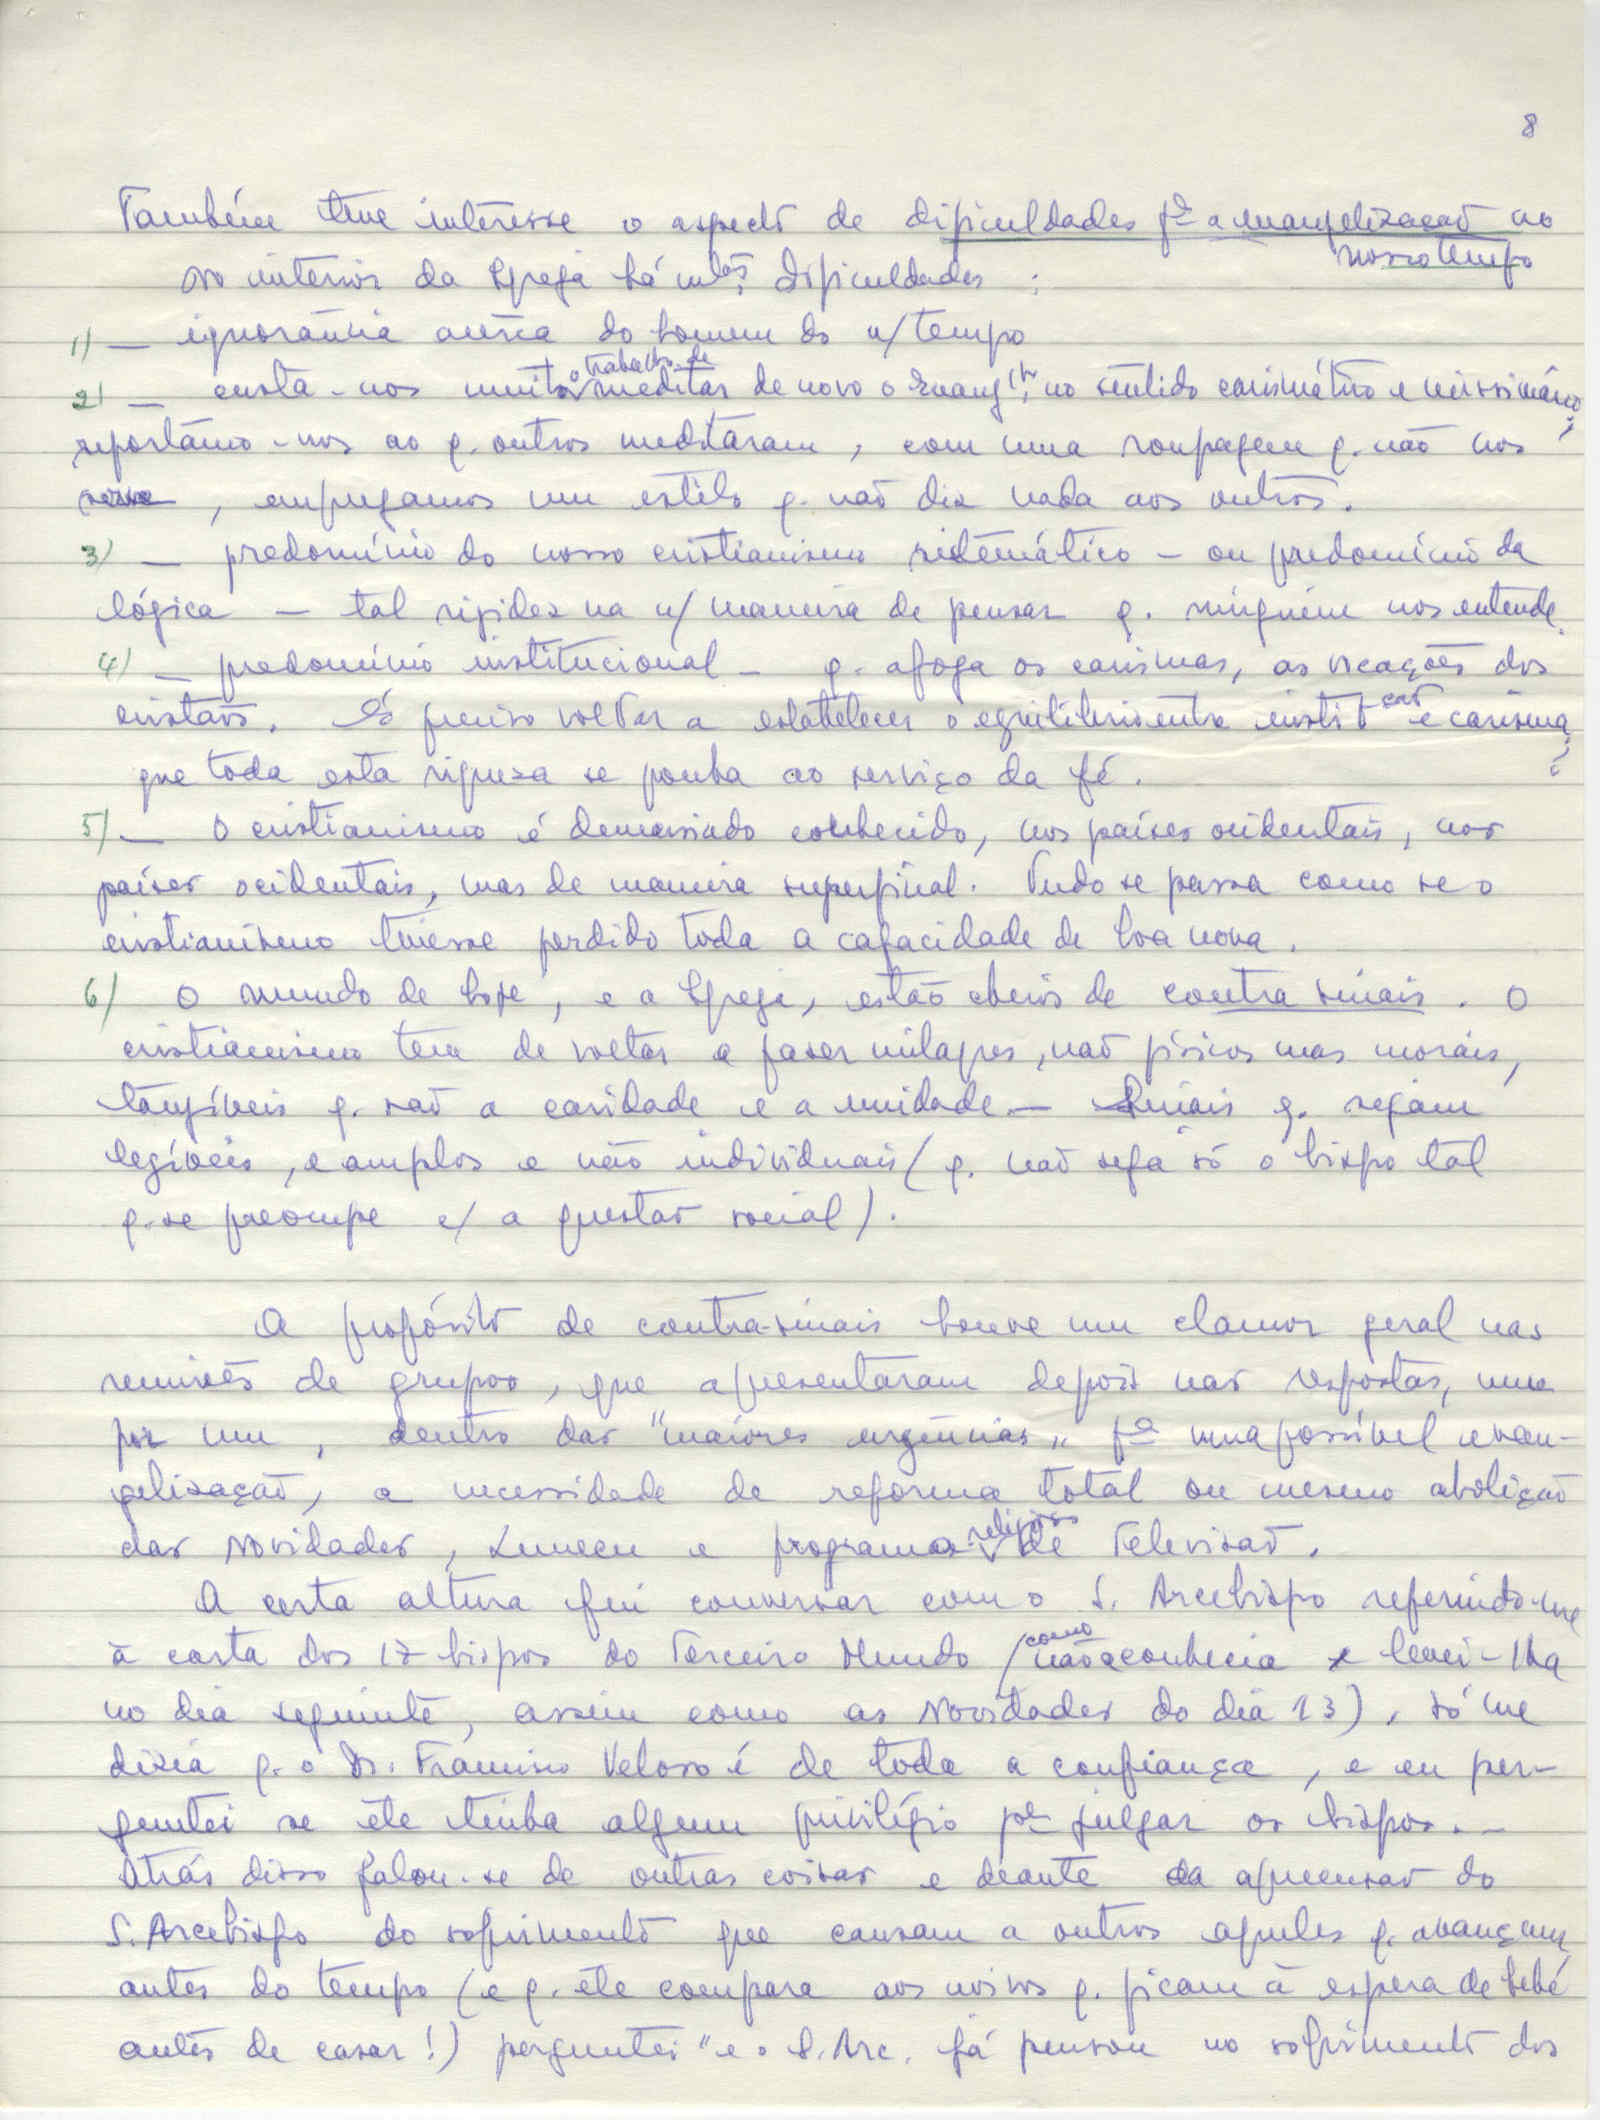 8
Também teve interesse o aspecto de dificuldades pª a evangelização no
nosso tempo
No interior da Igreja há mtas dificuldades :
1) — ignorância acerca do homem do n/ tempo
2) — custa-nos muito o trabalho de meditar de novo o Evangelho, no sentido carismático e missionário;
reportâmo-nos ao q. outros meditaram, com uma roupagem q. não nos
serve, empregamos um estilo q. não diz nada aos outros.
3) — predomínio do nosso cristianismo sistemático – ou predomínio da
lógica – tal rigidez na n/ maneira de pensar q. ninguém nos entende.
4) — predomínio institucional – q. afoga os carismas, as vocações dos
cristãos. É preciso voltar a estabelecer o equilíbrio entre instit-ção e carisma;
que toda esta riqueza se ponha ao serviço da fé.
5) — O cristianismo é demasiado conhecido, nos países ocidentais, nos
países ocidentais, mas de maneira superficial. Tudo se passa como se o
cristianismo tivesse perdido toda a capacidade de boa nova.
6) O mundo de hoje, e a Igreja, estão cheios de contra sinais. O
cristianismo tem de voltar a fazer milagres, não físicos mas morais,
tangíveis q. são a caridade e a unidade — Sinais q. sejam
legíveis, e amplos e não individuais (q. não seja só o bispo tal
q. se preocupe c/ a questão social).
A propósito de contra-sinais houve um clamor geral nas
reuniões de grupos, que apresentaram depois nas respostas, um
por um, dentro das "maiores urgências" pª uma possível evan-
gelização, a necessidade de reforma total ou mesmo abolição
das Novidades, Lumen e programas religiosos de Televisão.
A certa altura fui conversar com o S. Arcebispo referindo-me
à carta dos 17 bispos do Terceiro Mundo (como não a conhecia levei-lha
no dia seguinte, assim como as Novidades do dia 13), só me
dizia q. o Dr. Francisco Veloso é de toda a confiança, e eu per-
guntei se êle tinha algum privilégio pª julgar os bispos. –
Atrás disso falou-se de outras coisas e deante da apreensão do
S. Arcebispo do sofrimento que causam a outros aqueles q. avançam
antes do tempo (e q. êle compara aos noivos q. ficam à espera de bebé
antes de casar!) perguntei "e o S. Arc. já pensou no sofrimento dos